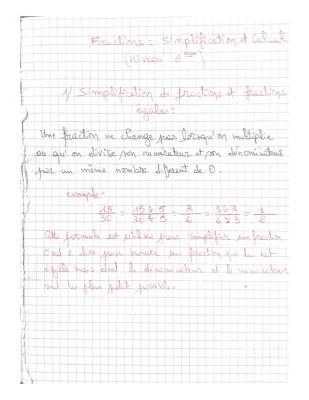 Fractions : Simplification et Calcul
(niveau 6ème)
1/ Simplification de fractions et fractions
égales :
Une fraction ne change pas lorsqu'on multiplie
ou qu'on divise son numérateur et son dénominateur
par un même nombre différent de 0.
exemple :
15/30 = 15 ÷ 5/30 ÷ 5 = 3/6 = 3 ÷ 3/6 ÷ 3 = 1/2
Cette formule est utilisée pour simplifier une fraction
c'est à dire pour trouver une fraction qui lui est
égale mais dont le dénominateur et le numérateur
sont les plus petits possible.